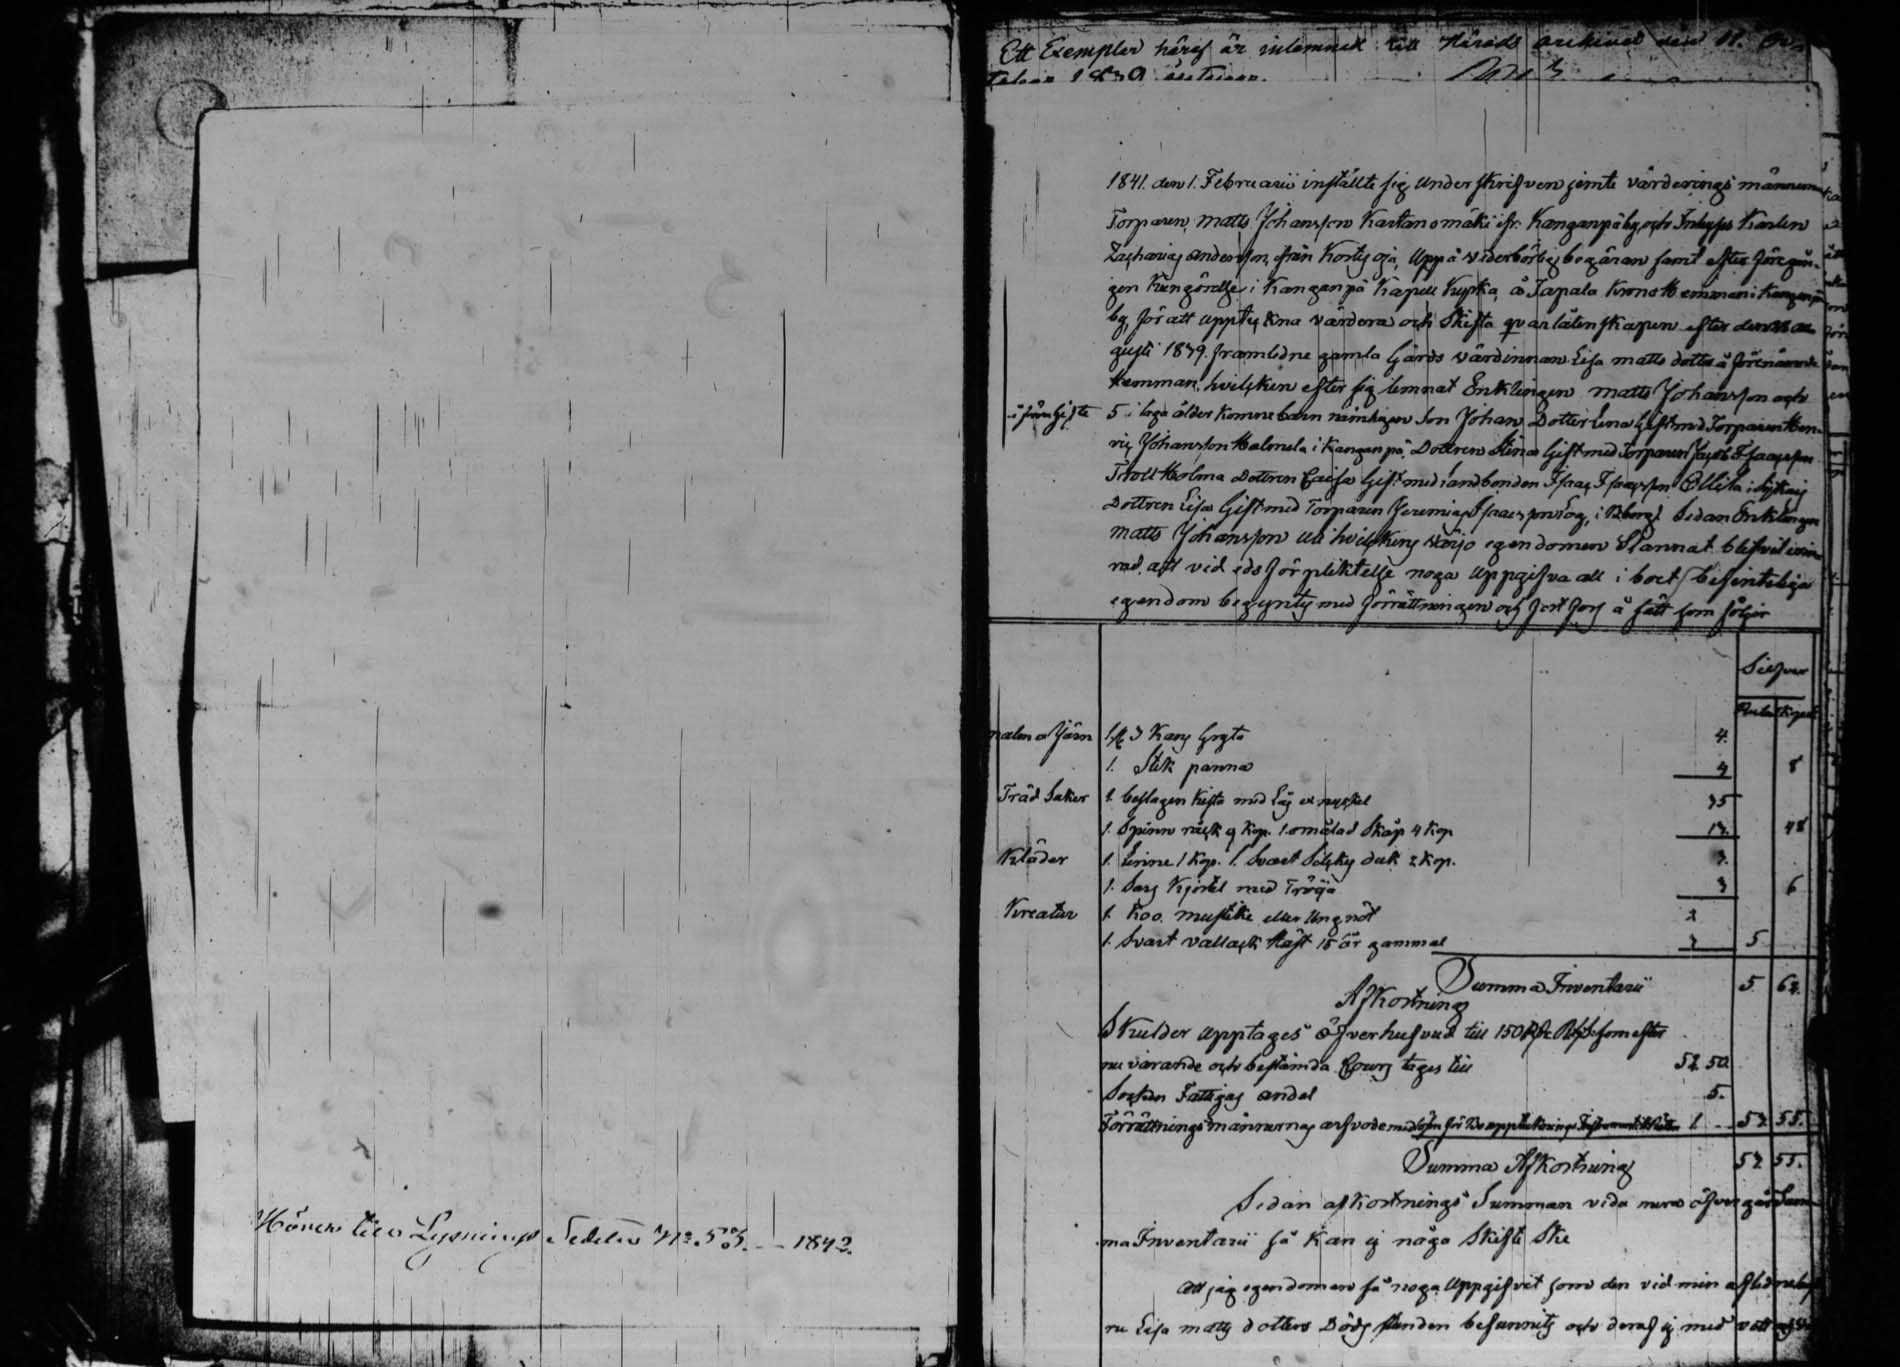 Hörer till Lysnings Sedeln No 53. — 1842.
Ett Exemplar häraf är inlemnadt till Härads archivet den 11.
1841. den 1. Februarii inställte sig Underskrifven jemte värderings männerne
Torparen Matts Johansson Kartanomäki ifr. Kanganpä by, och Inhyses Karlen
Zacharias Andersson, från Kortis oja, Uppå vederbörlig begäran samt efter föregån-
gen Kungörelse i Kanganpä Kapell Kyrka, å Tapala Krono Hemman i Kanganpä
by, för att uppteckna värdera och Skifta qvarlåtenskapen efter den 28 Au-
gusti 1839. framledne gamla Gårds värdinnan Lisa Matts dotter å förenämde
Hemman, hvilcken efter sig lemnat Enklingen Matts Johansson och
5 i laga ålder komne barn nämligen Son Johan Dotter Lena Gift med Torparen Hen-
ric Johansson Malmela i Kanganpä, Dottren Stina Gift med Torparen Jacob Isaacsson
Trolt Holma Dottren Caisa Gift med landbonden Isaac Isaacsson Ollila i
Dottren Lisa Gift med Torparen Jeremias Isaacsson i Sedan Enklingen
Matts Johansson uti hvilckens värjo egendomen Stannat blifvit erin-
rad, att vid eds förpliktelse noga Uppgifva all i boet befinteliga
egendom begyntes med förrättningen och fort fors å sätt som följer
Silfver
Rubel Kopek
malm o Järn 1. 3 Kans Gryta 4.
1. Stek panna 4 8
Träd Saker 1. beslagen kista med Lås o nyckel 35
1. Spinn råck 9 Kop. 1. omålad Skåp 4 Kop 13. 48
Kläder 1. 1 Kop. 1. Svart Silckes duk 2 Kop. 3.
1. Sars Kjortel med Tröija 3 6
Kreatur 1. Koo. Mustike eller Ungnöt 2
1. Svart vallack Häst 15 år gammal 3 5
Summa Inventarii 5 62.
Afkortning
Skulder Upptages öfverhufvud till 150 som efter
nu varande och bestämda Cours tages till 52 50
Socken Fattigas andel 5.
Förrättnings männernas arfvode med lösen för 1 53 55.
Summa Afkortning 53 55.
Sedan afkortnings Summan vida mera öfvergår Sum-
ma Inventarii så kan ej någo Skifte Ske
Att jag egendomen så noga Uppgifvit som den vid min aflidne
Lisa Matts dotters Döds stunden befunnits och deraf ej med